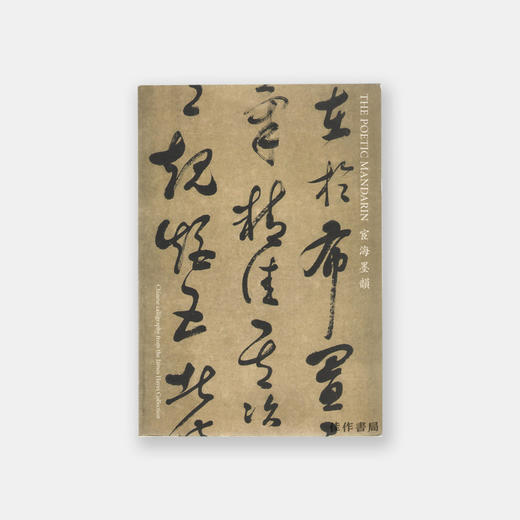 THE POETIC MANDARIN 宦海墨韻
在於布置
精佳其次
Chinese calligraphy from the James Hayes Collection
佳作書局